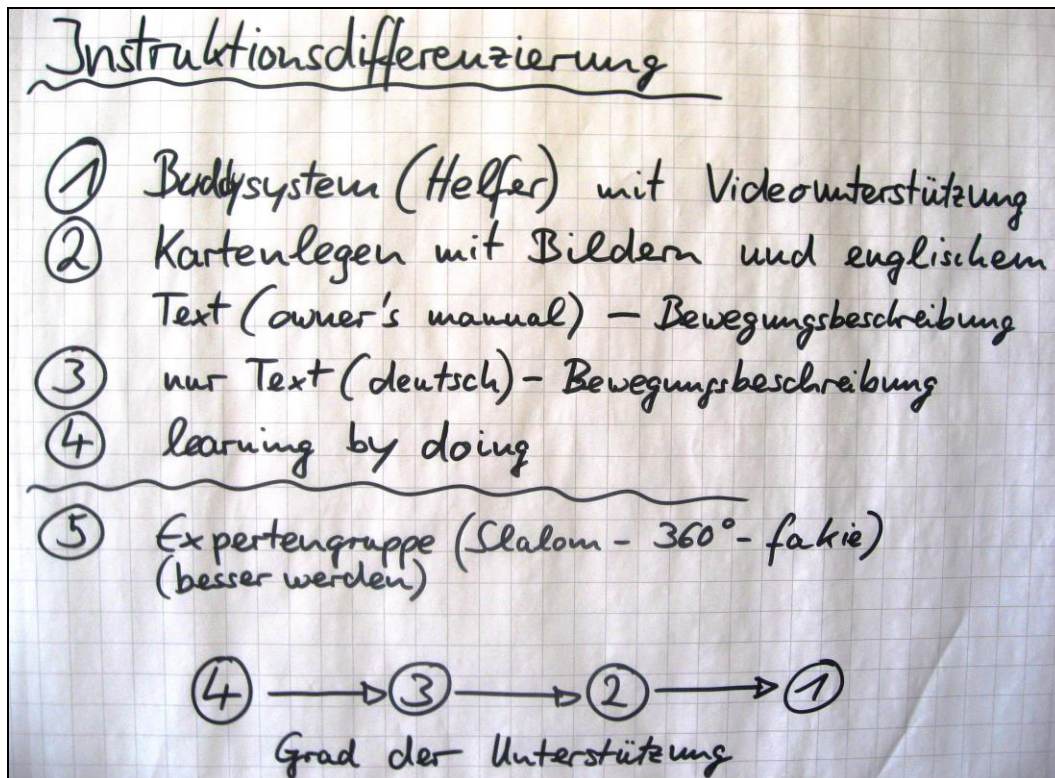 Instruktionsdifferenzierung
1 Buddysystem (Helfer) mit Videounterstützung
2 Kartenlegen mit Bildern und englischem
Text (owner's manual) – Bewegungsbeschreibung
3 nur Text (deutsch) – Bewegungsbeschreibung
4 learning by doing
5 Expertengruppe (Slalom – 360° – fakie)
(besser werden)
4 3 2 1
Grad der Unterstützung